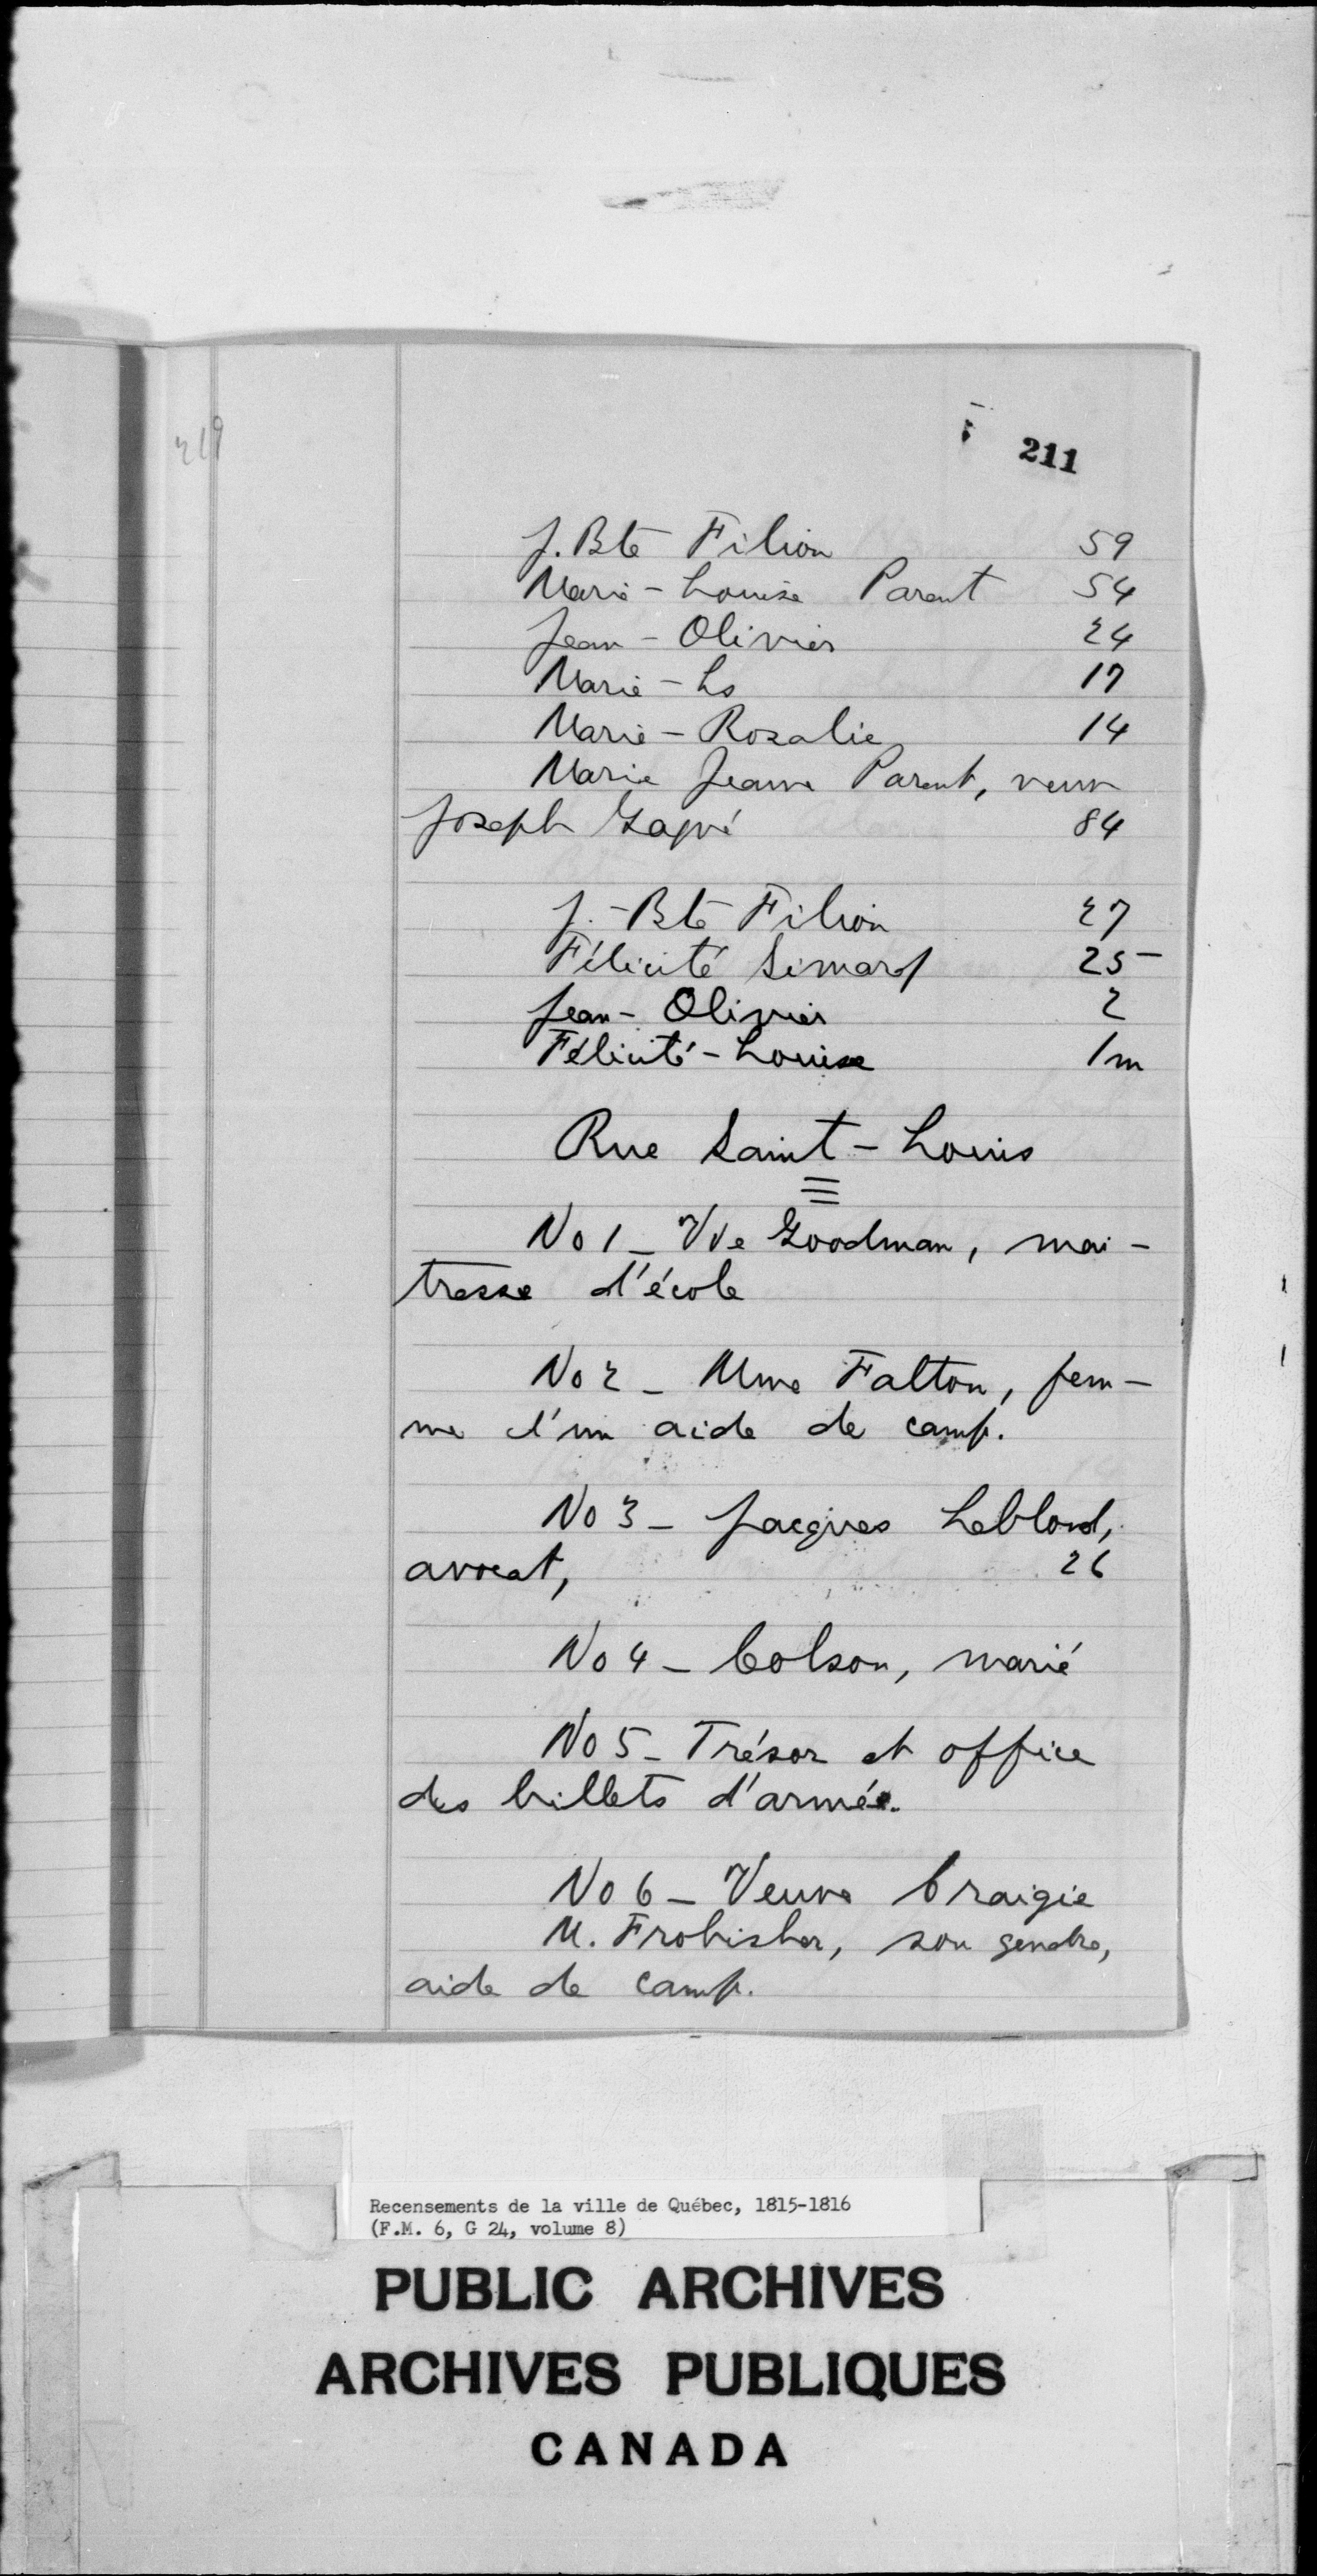 219
211
J. Bte Filion 59
Marie-Louise Parent 54
Jean-Olivier 24
Marie-Ls 17
Marie-Rosalie 14
Marie Jeanne Parent, veuve
Joseph 84
J.-Bte Filion 27
Félicité Simard 25
Jean-Olivier 2
Félicité-Louise 1m
Rue Saint-Louis
No 1 _ Vve Goodman, mai-
tresse d'école
No 2 _ Mme Falton, fem-
me d'un aide de camp.
No 3 _ Jacques Leblond,
avocat, 26
No 4 _ Colson, marié
No 5 _ Trésor et office
des billets d'armée.
No 6 _ Veuve Craigie
M. Frobisher, son gendre,
aide de camp.
Recensements de la ville de Québec, 1815-1816
(F.M. 6, G 24, volume 8)
PUBLIC ARCHIVES
ARCHIVES PUBLIQUES
CANADA